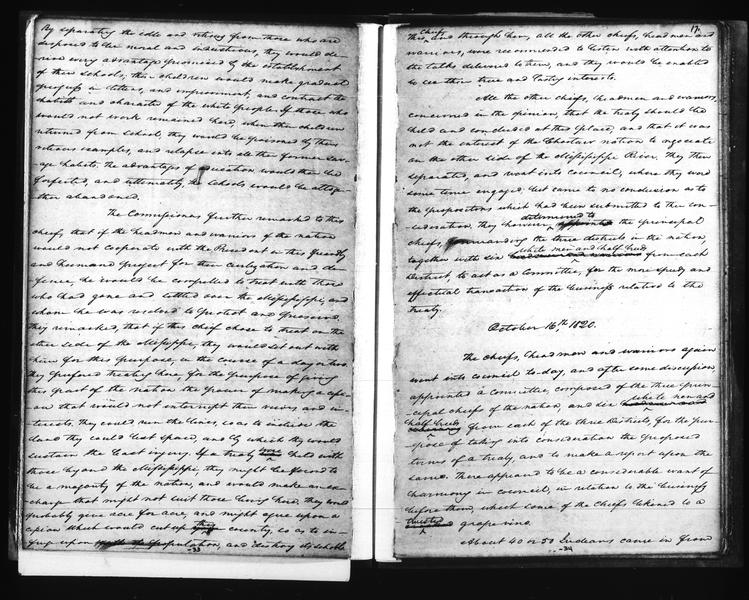 By separating the idle and vitious from those who are
disposed to be moral and industrious, they would de-
rive every advantage promised by the establishment
of these schools, their children would make gradual
progress in letters, and improvement, and contract the
habits and character of the white people. If those who
would not work remained here, when their children
returned from School, they would be poisoned by their
vitious examples, and relapse into all their former sav-
age habits; the advantages of education would then be
forfeited, and ultimately, the Schools would be altoge-
ther abandoned.
The Commissioners further remarked to this
chief, that if the headmen and warriors of the nation
would not cooperate with the President in this friendly
and humane project for their civilization and de-
fence, he would be compelled to treat with those
who had gone and settled over the Mississippi, and
whom he was resolved to protect and preserve,
they remarked, that if this chief chose to treat on the
other side of the Mississippi, they would set out with
him for this purpose, in the course of a day or two.
they prefered treating here, for the purpose of giving
this part of the nation the power of making a cess-
ion that would not interrupt their views and in-
terests, they could run the lines, so as to include the
land they could best spare, and by which they would
sustain the least injury. If a treaty were held with
those beyond the Mississippi, they might be found to
be a majority of the nation, and would make an ex-
change that might not suit those living here, they would
probably give acre for acre, and might agree upon a
cession which would cut up their country, so as to in-
fringe upon population, and destroy its schools
33
17.
chiefs
this, and through him, all the other chiefs, headmen and
warriors, were recommended to listen with attention to
the talks delivered to them, and they would be enabled
to see their true and lasting interests.
All the other chiefs, headmen and warriors,
concurred in the opinion, that the treaty should be
held and concluded at this place, and that it was
not the interest of the Choctaw nation to negociate
on the other side of the Mississippi River. they then
separated, and went into council, where they were
some time engaged, but came to no conclusion as to
the propositions which had been submitted to their con-
determined to
sideration, they however, appointed the principal
chiefs, the three districts in the nation,
white men and half breeds
together with six from each
District, to act as a Committee, for the more speedy and
effectual transaction of the business relative to the
treaty.
October 16th, 1820.
The chiefs, headmen and warriors again
went into council to-day, and after some discussion,
appointed a Committee, composed of the three prin-
white men and
cipal chiefs of the nation, and six
half breeds
from each of the three Districts, for the pur-
pose of taking into consideration the proposed
terms of a treaty, and to make a report upon the
same. There appeared to be a considerable want of
harmony in council, in relation to the business
before them, which some of the chiefs likened to a
twisted grapevine.
About 40 or 50 Indians came in from
34